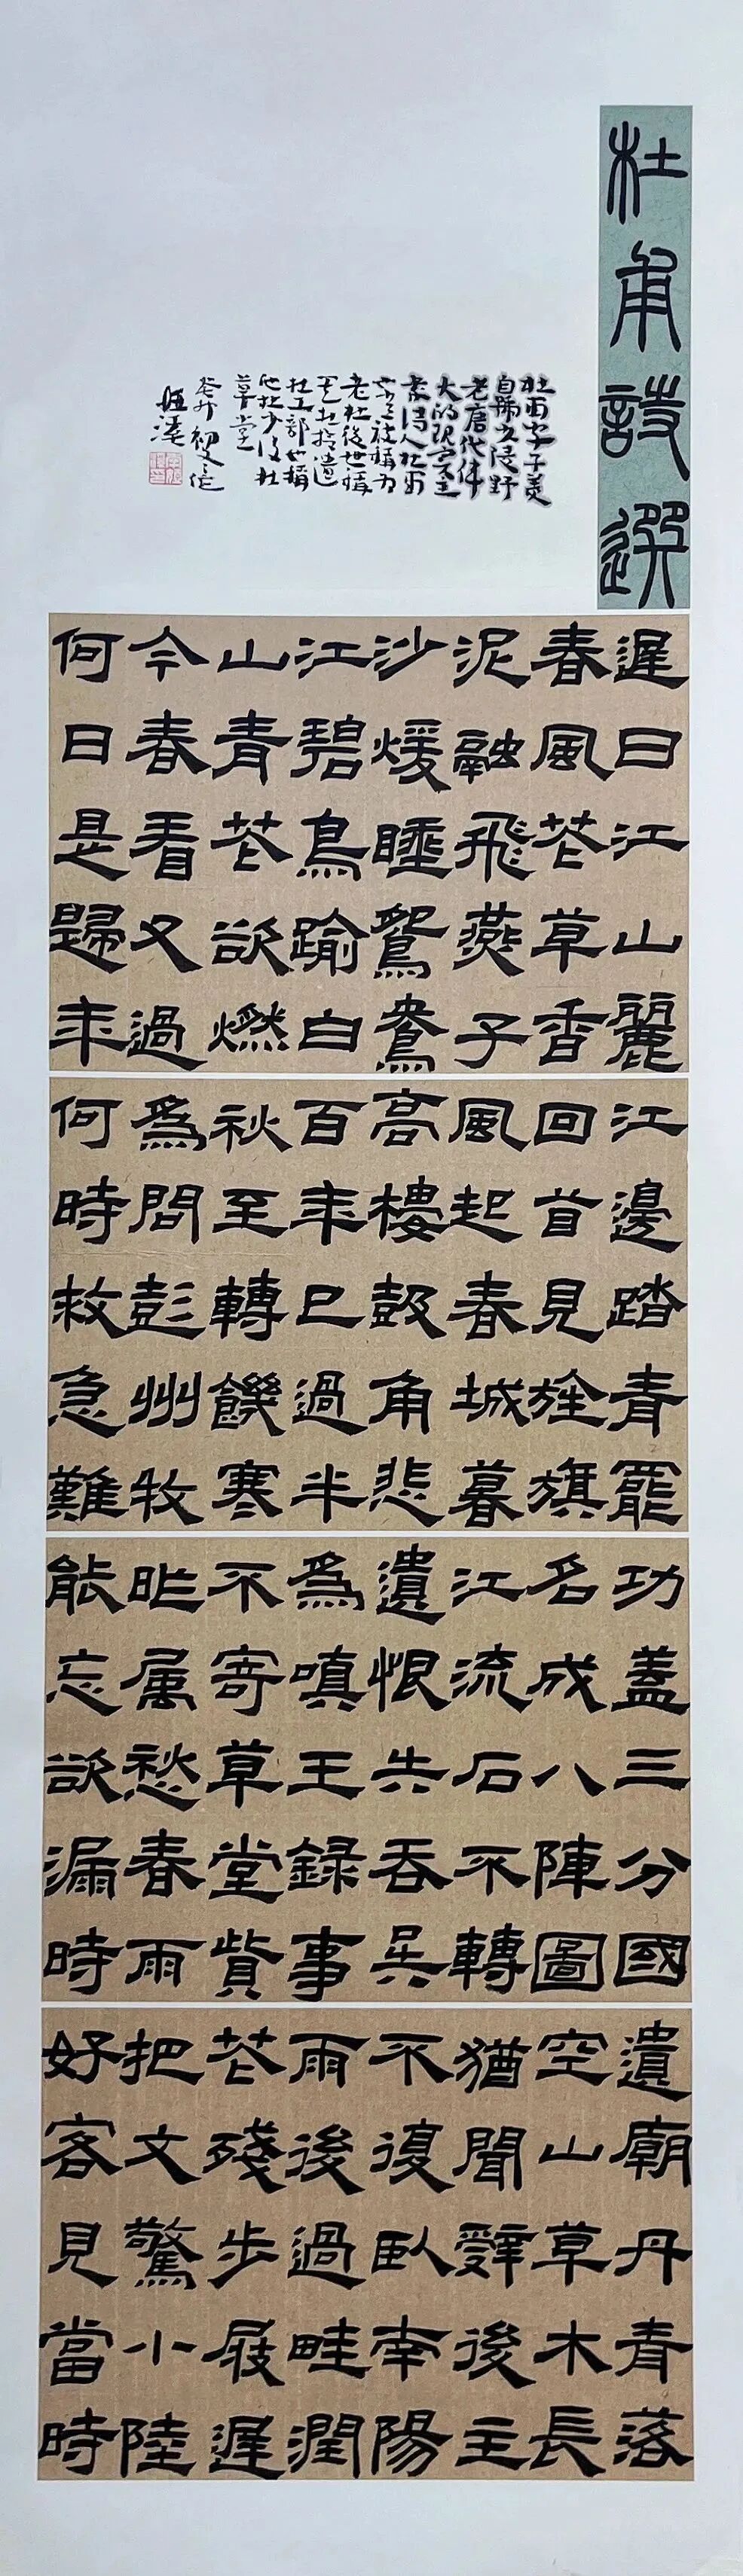 杜甫詩選
杜甫字子美
自號少陵野
老唐代偉
大的現實主
義詩人杜甫
被稱為
老杜後世稱
其杜拾遺
杜工部也稱
他杜少陵杜
草堂
癸卯
遲日江山麗
春風花草香
泥融飛燕子
沙煖睡鴛鴦
江碧鳥踰白
山青花欲燃
今春看又過
何日是歸年
江邊踏青罷
回首見旌旗
風起春城暮
高樓鼓角悲
百年已過半
秋至轉饑寒
爲問彭州牧
何時救急難
功蓋三分國
名成八陣圖
江流石不轉
遺恨失吞吳
爲嗔王録事
不寄草堂貲
昨属愁春雨
能忘欲漏時
遺廟丹青落
空山草木長
猶聞辭後主
不復臥南陽
雨後過畦潤
花殘步屐遲
把文驚小陸
好客見當時